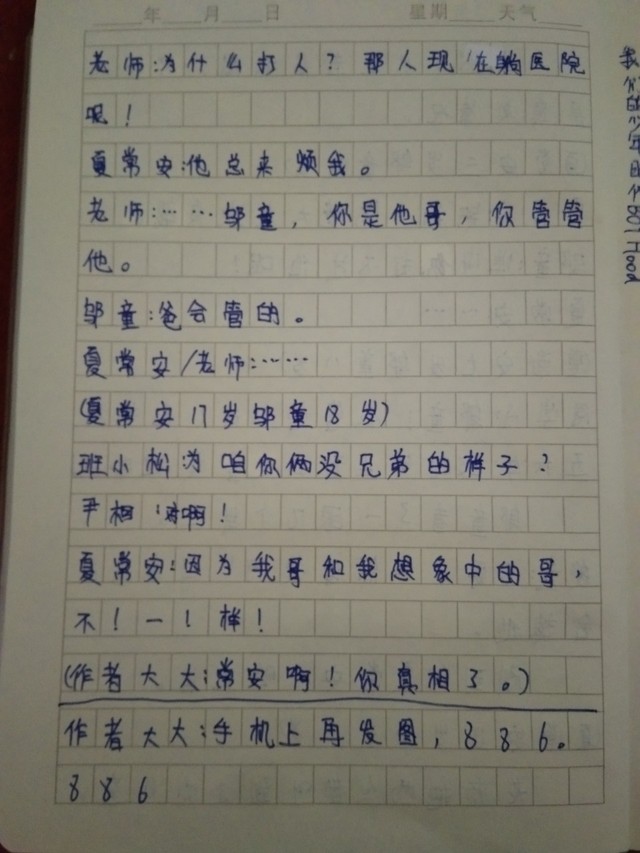 年 月 日 星期 天气
老师:为什么打人?那人现在躺医院
呢!
夏常安:他总来烦我。
老师:……邬童,你是他哥,你管管
他。
邬童:爸会管的。
夏常安/老师:……
(夏常安17岁邬童18岁)
班小松:为咱你俩没兄弟的样子?
尹柯:对啊!
夏常安:因为我哥和我想象中的哥,
不!一!样!
(作者大大:常安啊!你真相了。)
作者大大:手机上再发图,886。
886
我们的少年时代